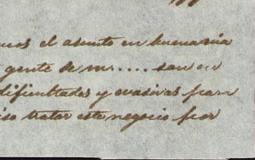 el asunto en buena via
gente de mr.... son en
dificultades y evasivas para
tratar este negocio por